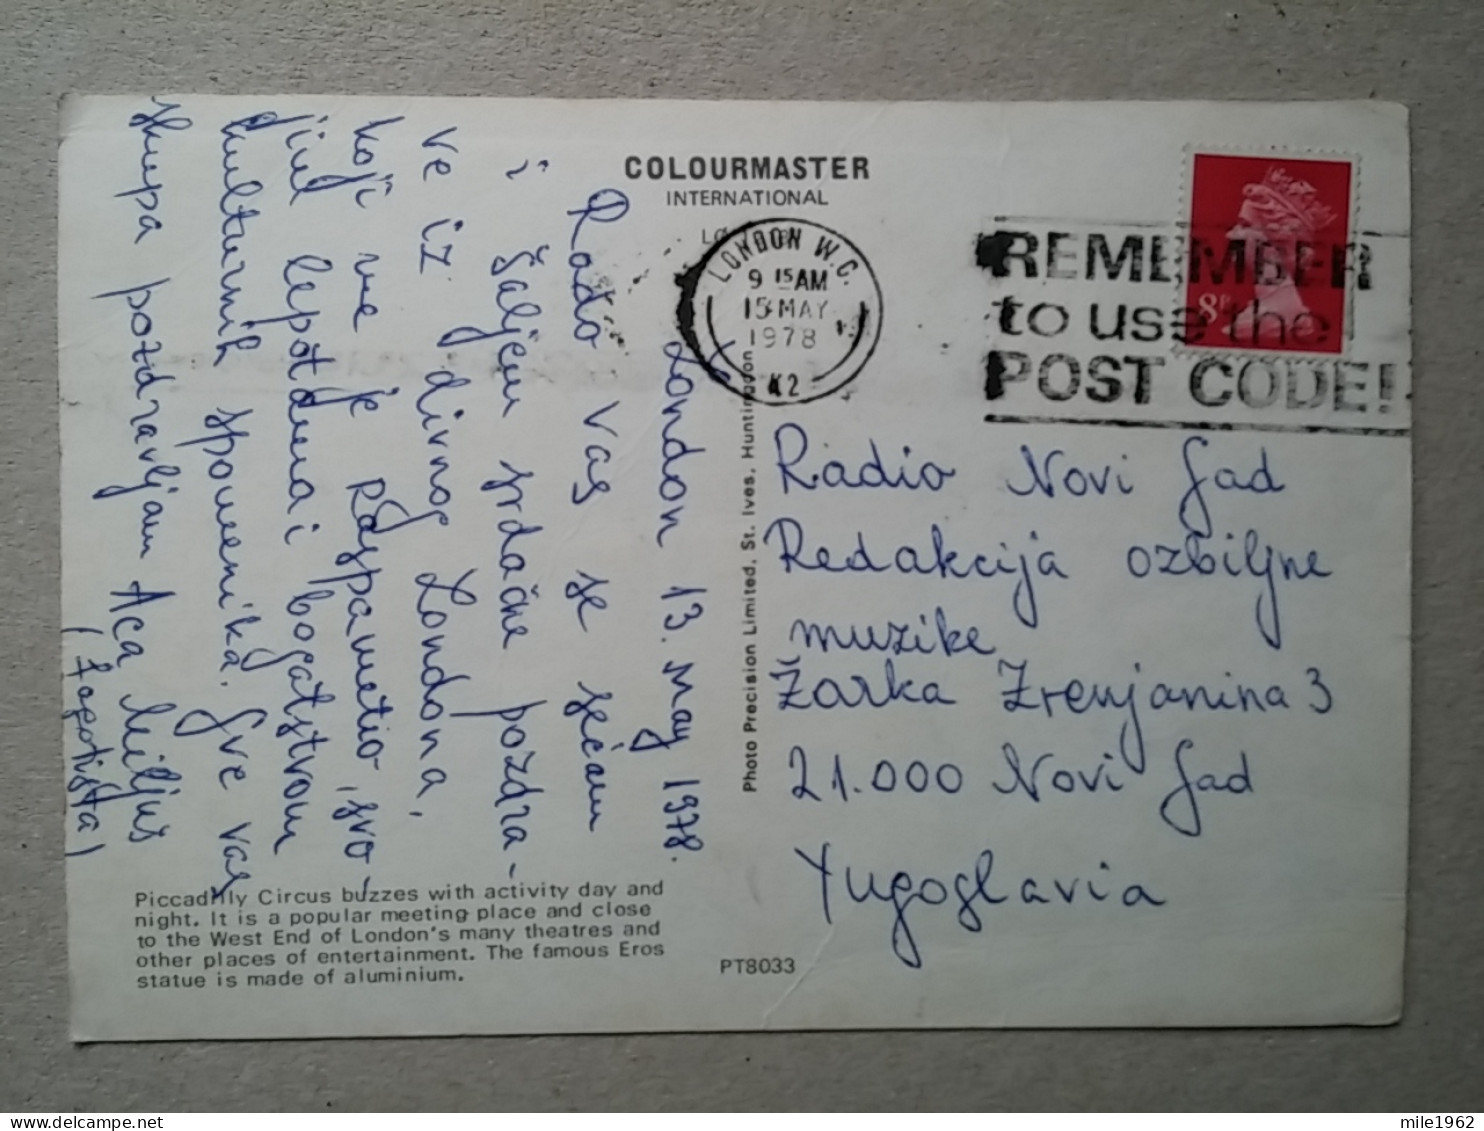 COLOURMASTER
INTERNATIONAL
LONDON W.C.
9 15 AM
15 MAY
1978
K2
REMEMBER
to use the
POST CODE!
8P
London 13. May 1978.
Rado Vas se sećam
i šaljem srdačne pozdra-
ve iz divnog Londona,
koji me je raspametio svo-
jim lepotama i bogatstvom
kulturnih spomenika. Sve vas
skupa pozdravljam Aca Miljus
(fagotista)
Photo Precision Limited, St. Ives, Huntingdon
Radio Novi Sad
Redakcija ozbiljne
muzike
Žarka Zrenjanina 3
21.000 Novi Sad
Yugoslavia
Piccadilly Circus buzzes with activity day and
night. It is a popular meeting place and close
to the West End of London's many theatres and
other places of entertainment. The famous Eros
statue is made of aluminium.
PT8033
mile1962